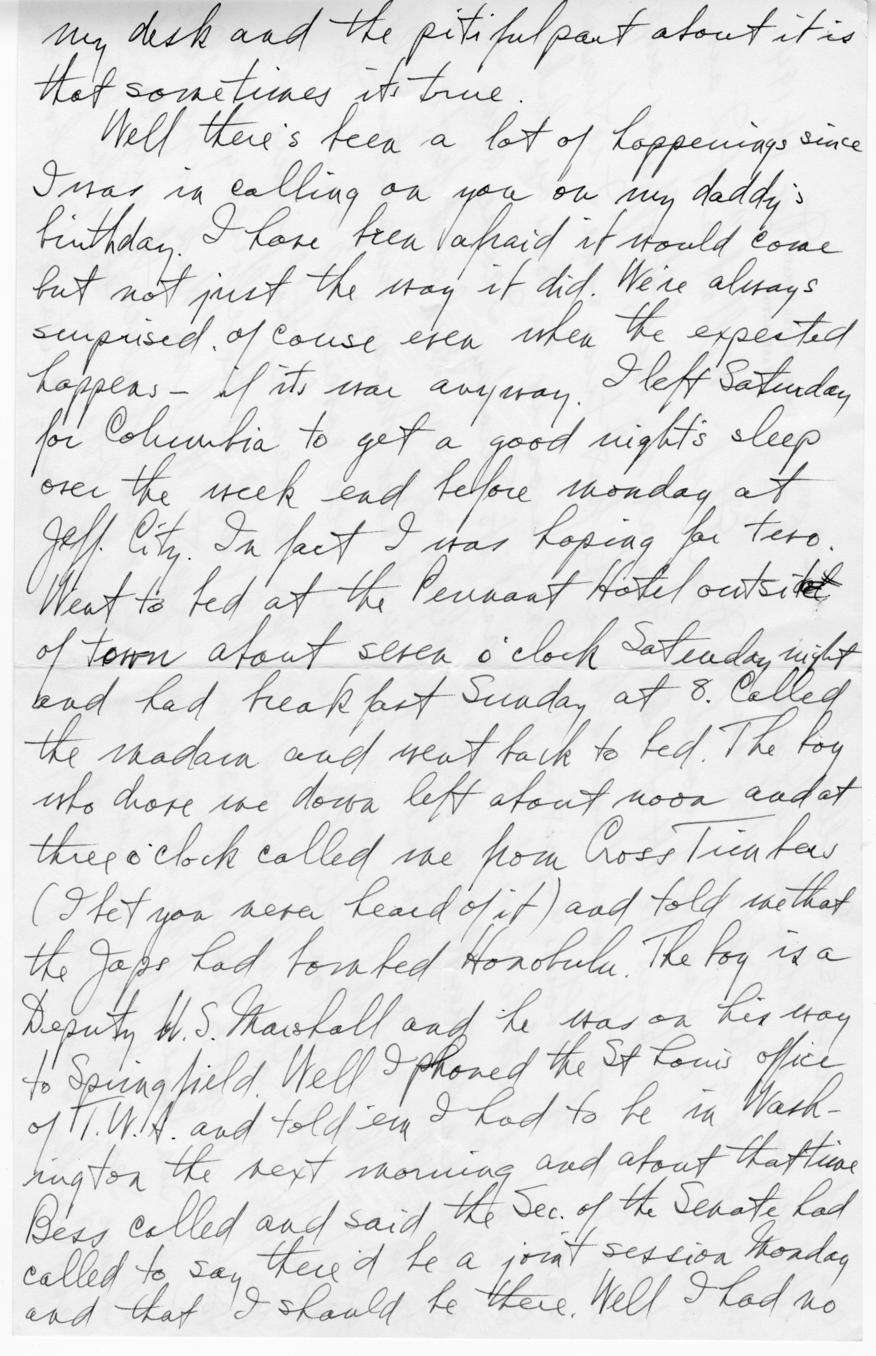 my desk and the pitiful part about it is
that sometimes its true.
Well there's been a lot of happenings since
I was in calling on you on my daddy's
birthday. I have been afraid it would come
but not just the way it did. We're always
surprised, of couse even when the expected
happens – if its war anyway. I left Saturday
for Columbia to get a good night's sleep
over the week end before monday at
Jeff. City. In fact I was hoping for two.
Went to bed at the Pennant Hotel outside
of town about seven o'clock Saturday night
and had breakfast Sunday at 8. Called
the madam and went back to bed. The boy
who drove me down left about noon and at
three o'clock called me from Cross Timbers
(I bet you never heard of it) and told me that
the Japs had bombed Honolulu. The boy is a
Deputy U.S. Marshall and he was on his way
to Springfield. Well I phoned the St Louis office
of T.W.A. and told 'em I had to be in Wash-
ington the next morning and about that time
Bess called and said the Sec. of the Senate had
called to say there'd be a joint session Monday
and that I should be there. Well I had no